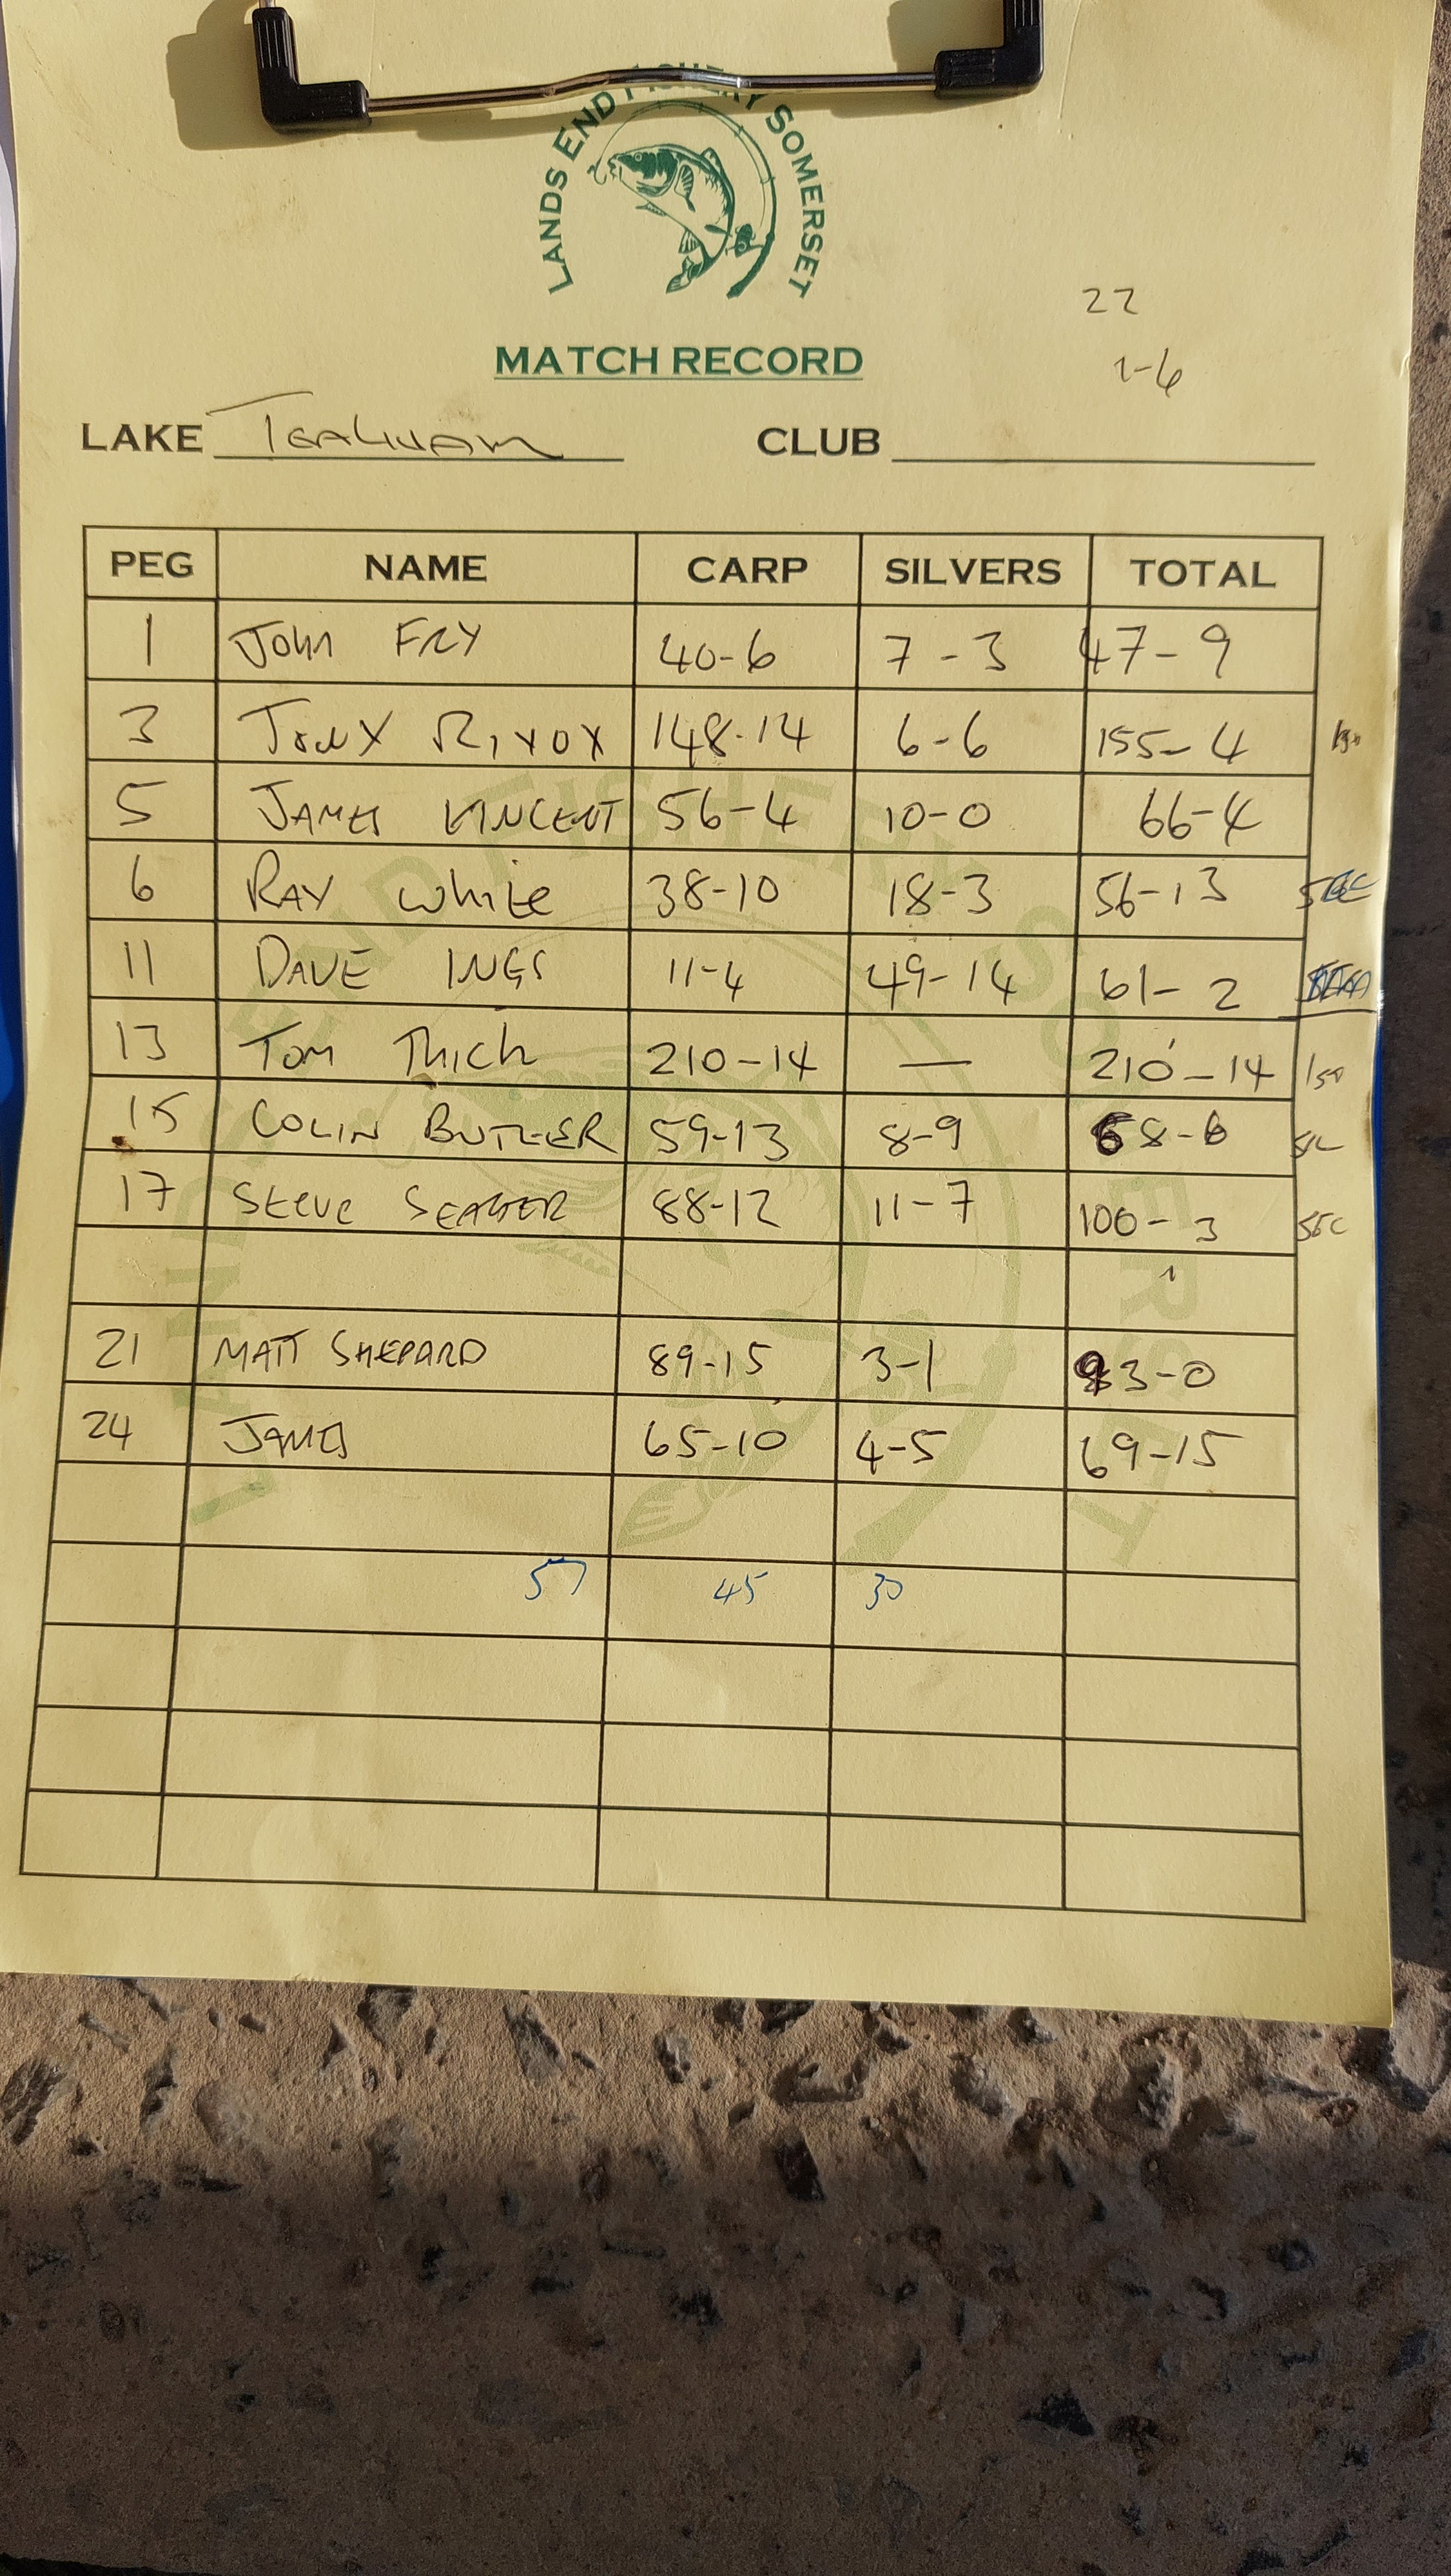 LANDS END FISHERY SOMERSET
22
1-6
MATCH RECORD
LAKE Tealham CLUB
PEG NAME CARP SILVERS TOTAL
1 John Fry 40-6 7-3 47-9
3 148-14 6-6 155-4
5 James Vincent 56-4 10-0 66-4
6 Ray White 38-10 18-3 56-13 SEC
11 Dave Ings 11-4 49-14 61-2
13 Tom Thick 210-14 — 210-14
15 Colin Butler 59-13 8-9 68-6
17 Steve Seager 88-12 11-7 100-3 SEC
21 Matt Shepard 89-15 3-1 93-0
24 James 65-10 4-5 69-15
57 45 30
LANDS END FISHERY SOMERSET